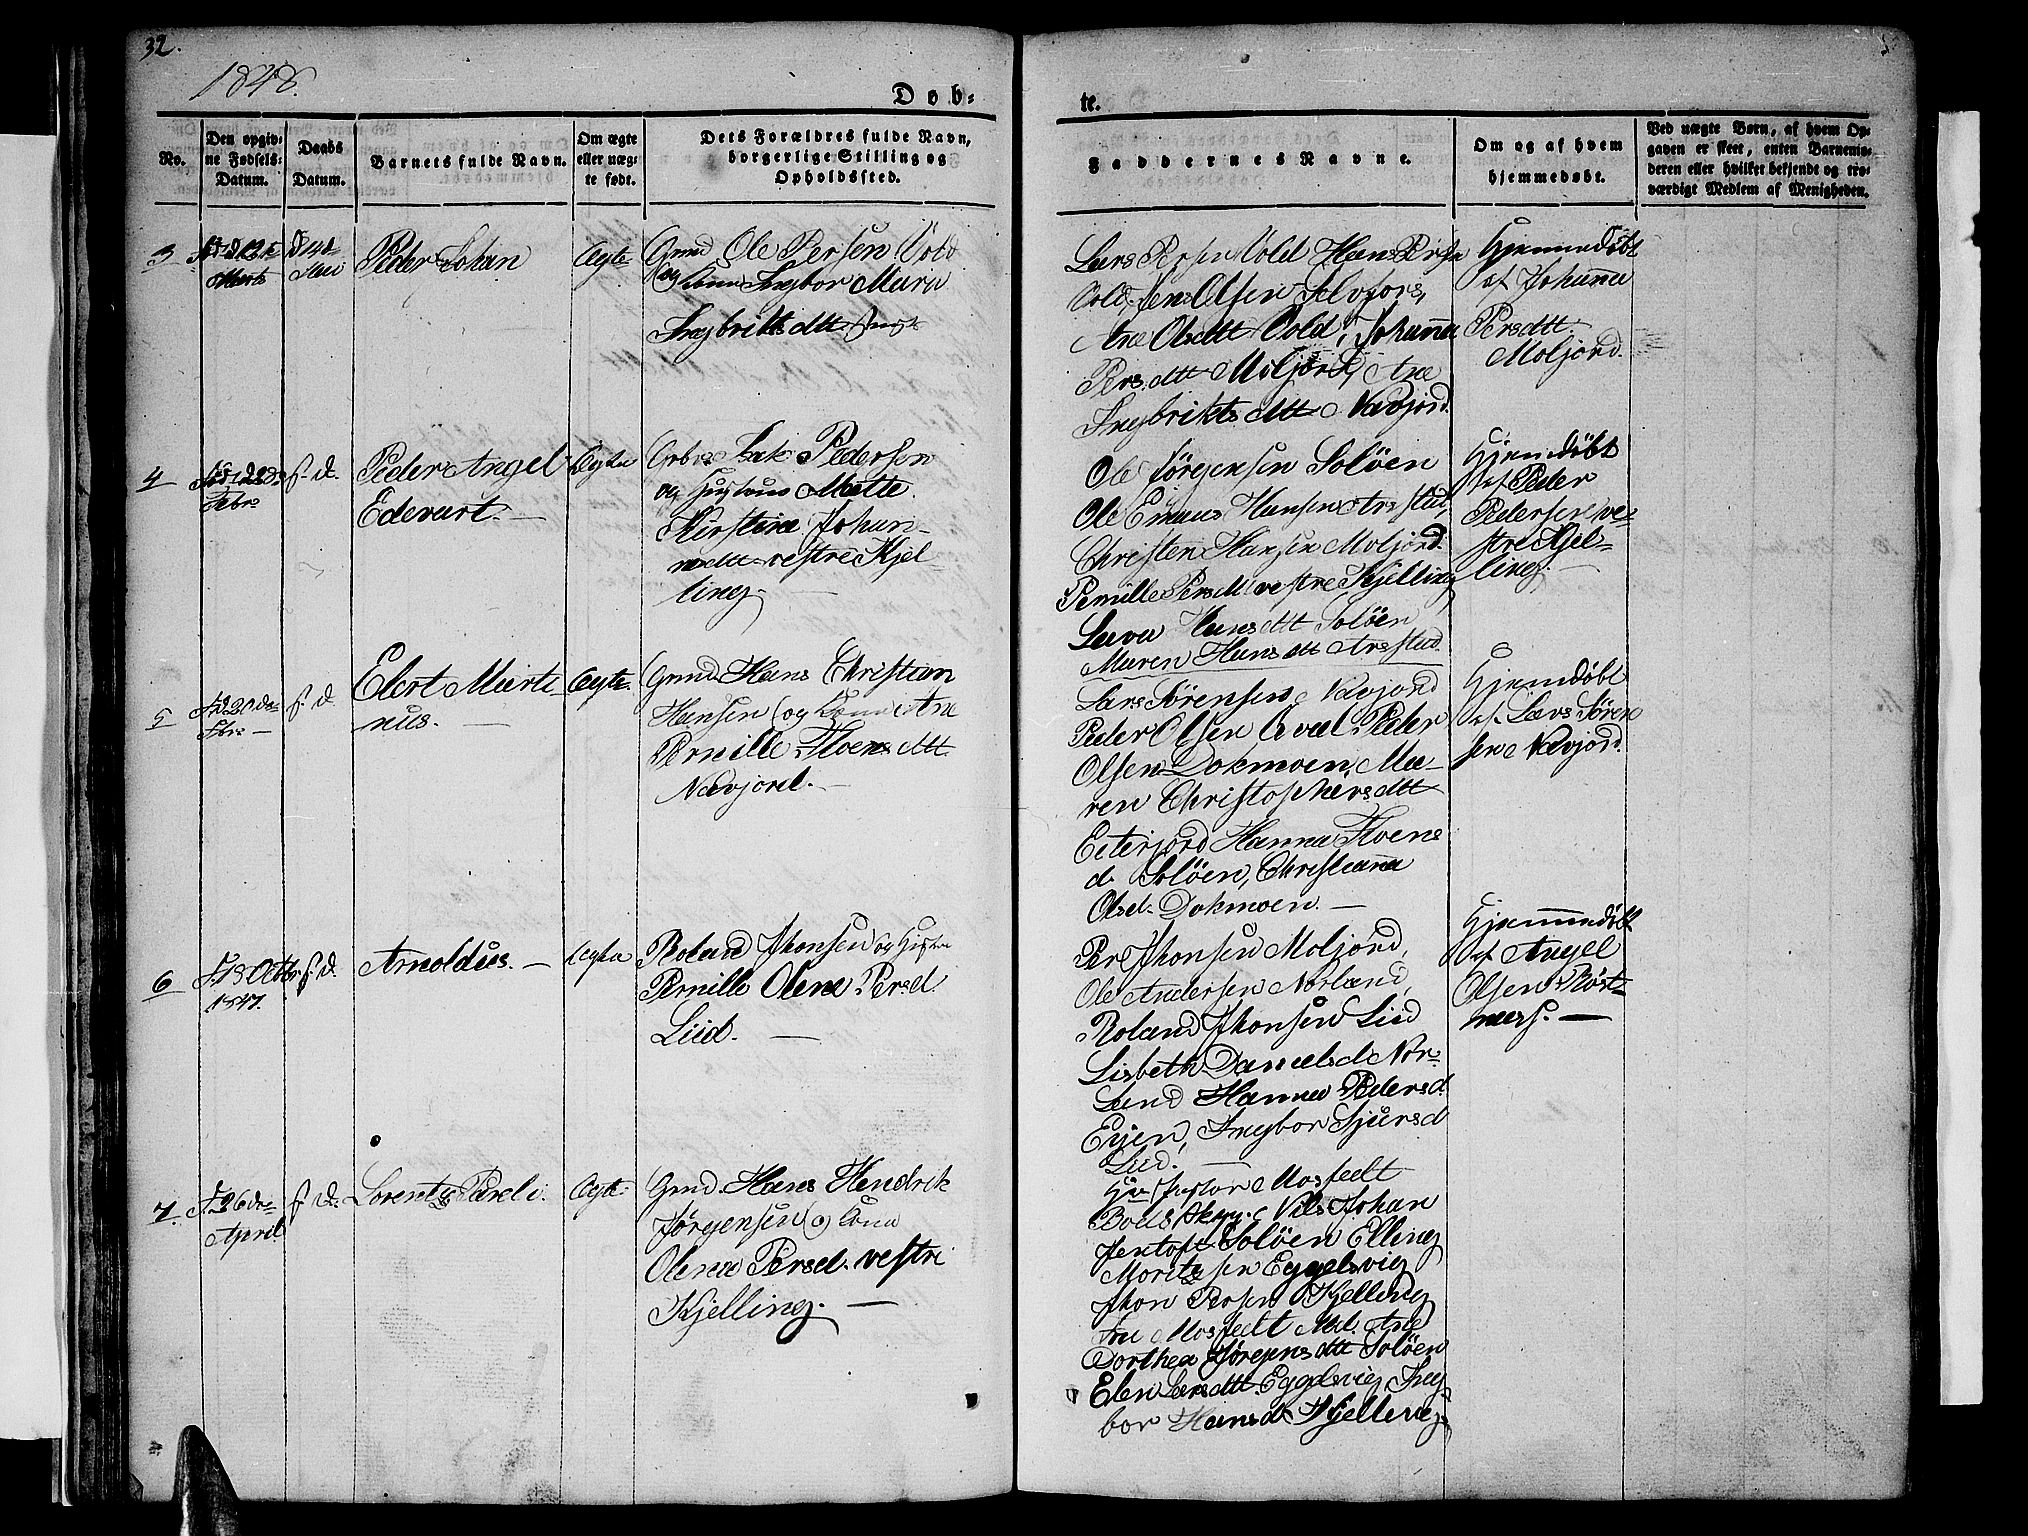 32.
1848.
Døb-
te.
No.
Den opgiv-
ne Fødsels-
Datum.
Daabs
Datum.
Barnets fulde Navn.
Om ægte
eller uæg-
te født.
Dets Forældres fulde Navn,
borgerlige Stilling og
Opholdssted.
Faddernes Navne.
Om og af hvem
hjemmedøbt.
Ved uægte Børn, af hvem Op-
gaven er skeet, enten Barnemo-
deren eller hvilket bekjendt og tro-
værdigt Medlem af Menigheden.
3
Marts
Mai
Peder Johan
Ægte
Gmd Ole Persen Vold
og Kone Ingbor Maria
Ingbriktsdtt
Lars Persen Vold Hans
Vold, Jens Olsen Selvfors,
Ane Olsdtt Vold, Johanna
Persdtt Moljord, Ane
Ingbriktsdtt Navjord.
Hjemmedøbt
af Johanna
Persdtt
Moljord.
4
Febr
s. d.
Peder Angel
Edevart.
Ægte
Isak Pedersen
og Hustru Mette
Kirstine Johan-
nesdtt vestre Kjel-
ling.
Ole Jørgensen Soløen
Ole Hansen Arstad,
Christen Hansen Moljord.
Pernille Persd vestre Kjelling
Lava Hansdtt Soløen
Maren Hansdtt Arstad.
Hjemdøbt
af Peder
Pedersen ve-
stre Kjel-
ling.
5
20de
Fbr
s. d.
Elert Marti-
nus.
Ægte.
Gmd. Hans Christian
Hansen og Kone Ane
Pernille Floensdtt
Navjord.
Lars Sørensen Navjord
Peder Olsen Qvæl Peder
Olsen Dokmoen, Ma-
ren Christophersdtt
Eiterjord Hanna Floens
d. Soløen, Christianna
Olsd. Dokmoen.
Hjemdøbt
af Lars Søren
sen Navjord.
6
F. 13 Octbr
1847.
s. d.
Arnoldus.
Ægte
Roland Jhonsen og Hustru
Pernille Olena Persd
Liid.
Per Jhonsen Moljord,
Ole Andersen Norland,
Roland Jhonsen Liid
Lisbeth Danielsd Nor-
land Hanna Pedersd.
Eyen, Ingbor Sjursd
Liid.
Hjemmedøbt
af Angel
Olsen Røst-
næs.
7.
F. 26de
April.
s. d.
Lorents Pareli.
Ægte
Gmd. Hans Hendrik
Jørgensen og Kone
Olena Persd. vestre
Kjelling.
Hr Pastor Mosfeldt
Nils Johan
Jentoft Soløen Elling
Moritzsen Eggelsvig
Jhon Persen Kjelling
Fru Mosfeldt Md. Ane
Dorthea Jørgensdtt Soløen
Elen Larsdtt Eggelsvig Ing-
bor Hansd. Kjelling.